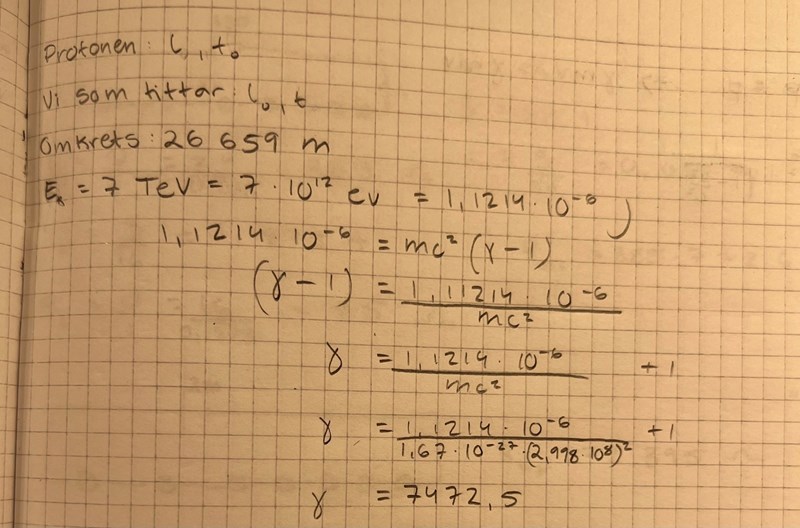 Protonen: l, t₀
Vi som tittar: l₀, t
Omkrets: 26 659 m
Eₖ = 7 TeV = 7 · 10¹² ev = 1,1214 · 10⁻⁶ J
1,1214 · 10⁻⁶ = mc² (γ - 1)
(γ - 1) = 1,11214 · 10⁻⁶ / mc²
γ = 1,1214 · 10⁻⁶ / mc² + 1
γ = 1,1214 · 10⁻⁶ / 1,67 · 10⁻²⁷ · (2,998 · 10⁸)² + 1
γ = 7472,5